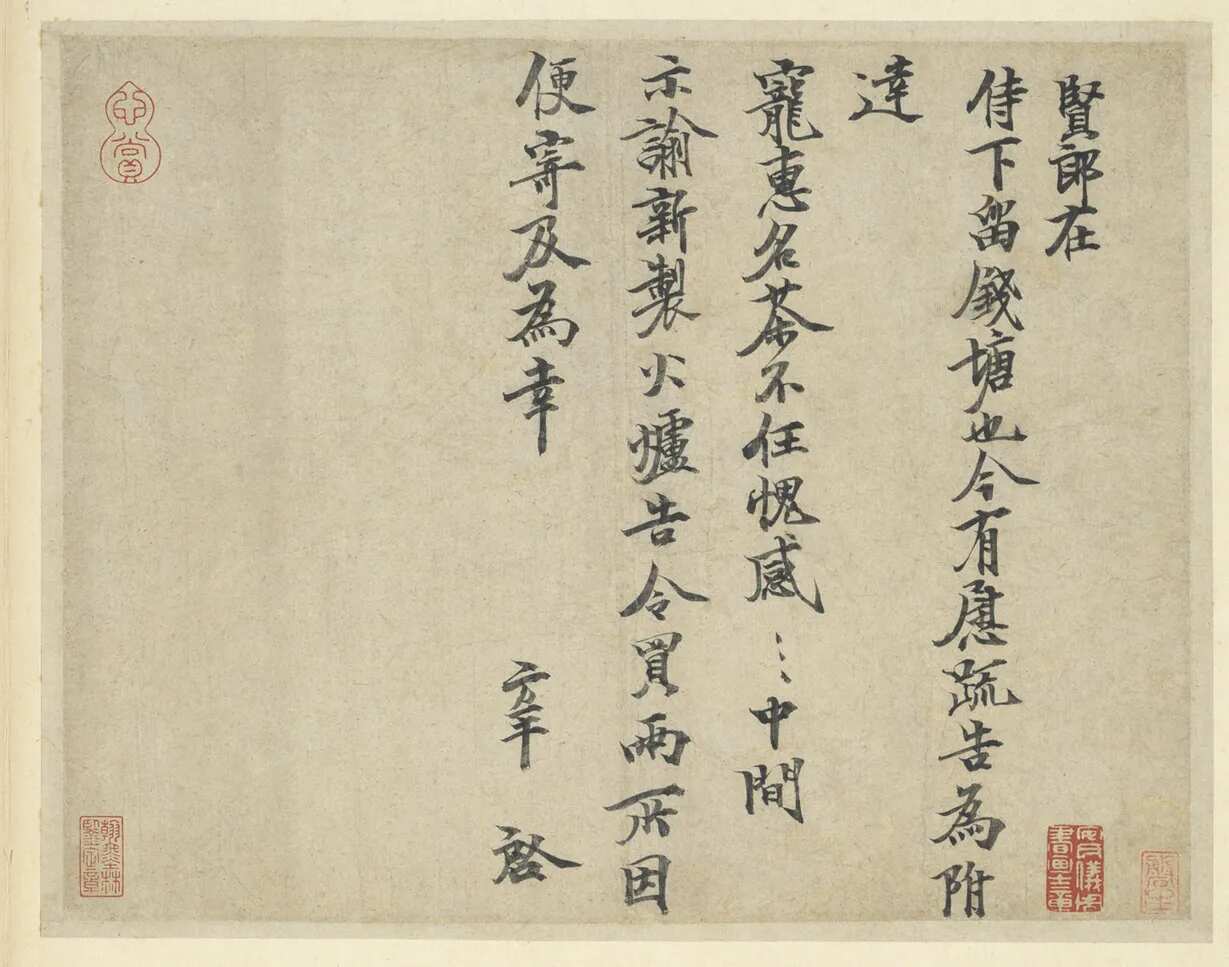 賢郎在
侍下留錢塘也今有慰疏告為附
達
寵惠名茶不任愧感〻中間
示諭新製火爐告令買兩所因
便寄及為幸
方平 啓